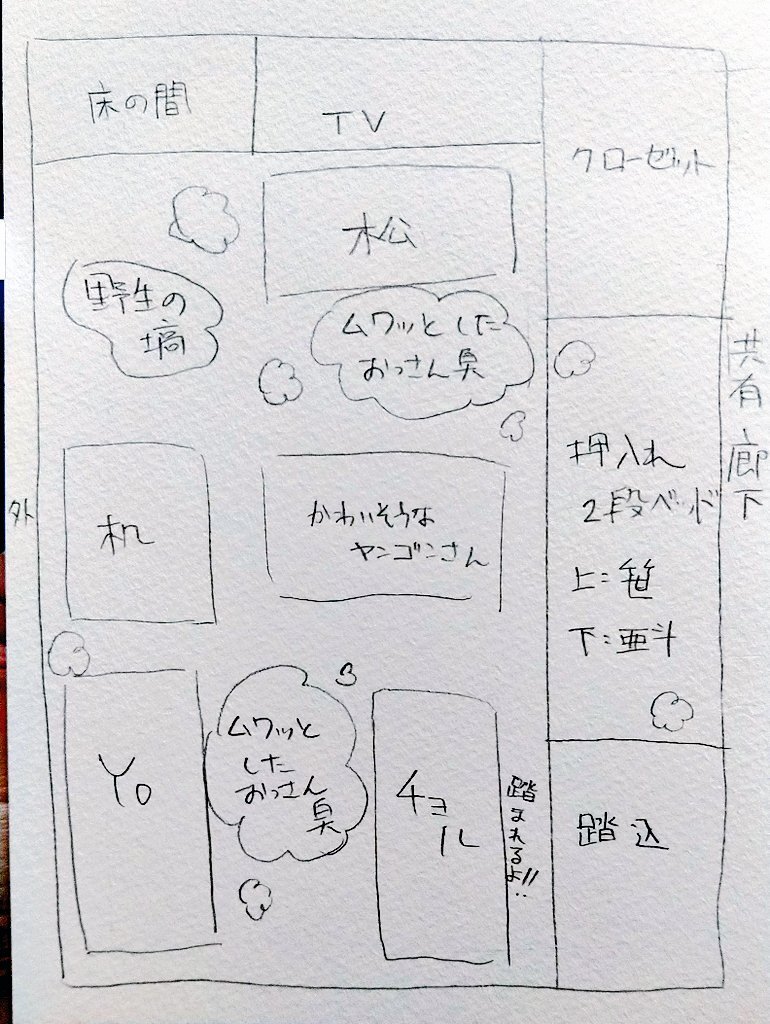 床の間
TV
クローゼット
松
野生の
塙
ムワッとした
おっさん臭
共有廊下
押入れ
2段ベッド
上:笹
下:亜斗
外
机
かわいそうな
ヤンゴンさん
Yo
ムワッと
した
おっさん
臭
チョル
踏まれるよ!!
踏込